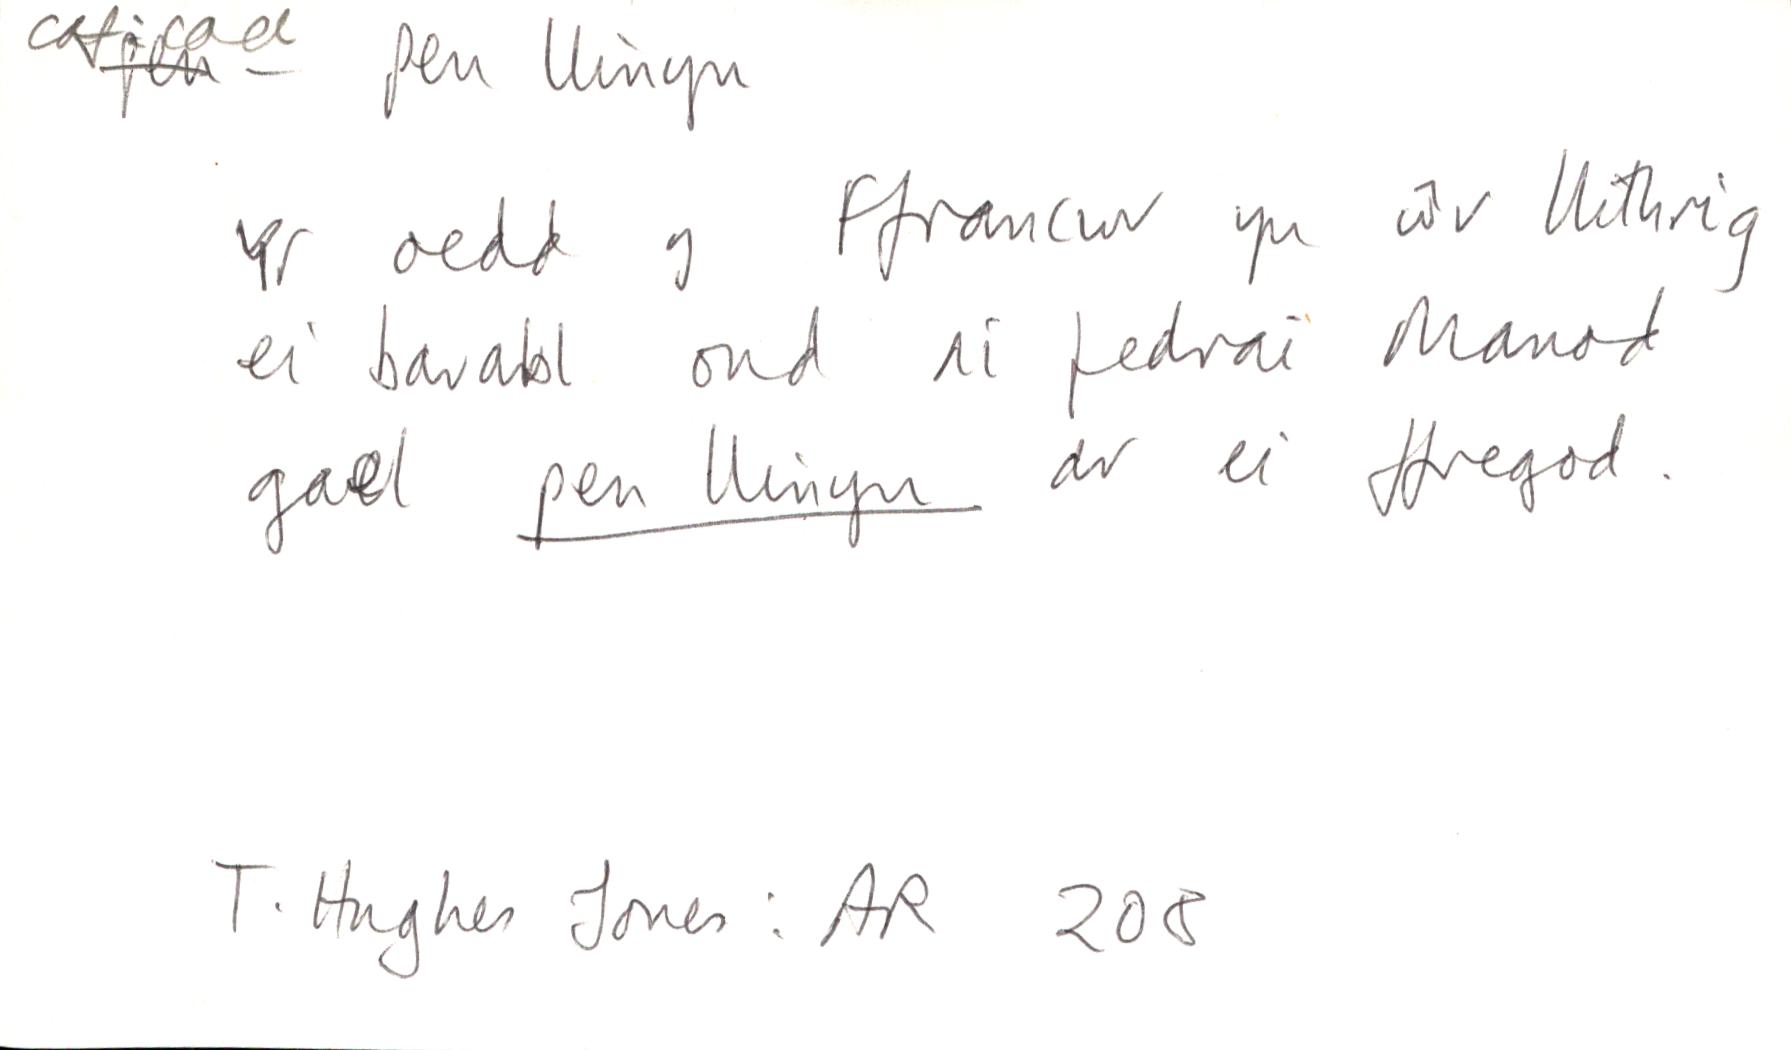 caf: cael pen llinyn
Yr oedd y Ffrancwr yn ŵr llithrig
ei barabl ond ni fedrai Manod
gael pen llinyn ar ei ffregod.
T. Hughes Jones: AR 208